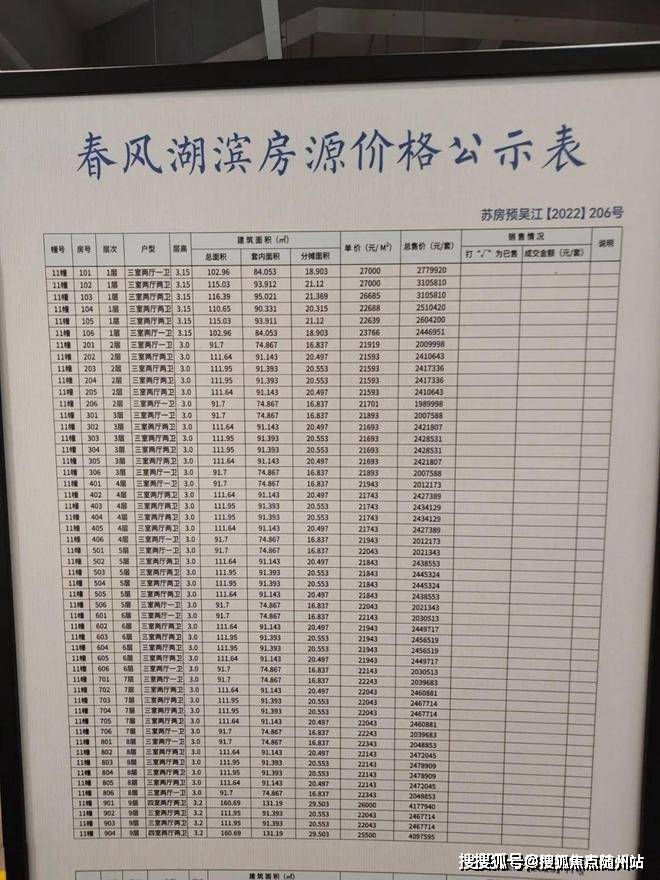 春风湖滨房源价格公示表
苏房预吴江【2022】206号
幢号 房号 层次 户型 层高 建筑面积（㎡） 单价（元/M²） 总售价（元/套） 销售情况 说明
总面积 套内面积 分摊面积 打“√”为已售 成交金额（元/套）
11幢 101 1层 三室两厅一卫 3.15 102.96 84.053 18.903 27000 2779920
11幢 102 1层 三室两厅两卫 3.15 115.03 93.912 21.12 27000 3105810
11幢 103 1层 三室两厅两卫 3.15 116.39 95.021 21.369 26685 3105810
11幢 104 1层 三室两厅两卫 3.15 110.65 90.331 20.315 22688 2510420
11幢 105 1层 三室两厅两卫 3.15 115.03 93.911 21.12 22639 2604200
11幢 106 1层 三室两厅一卫 3.15 102.96 84.053 18.903 23766 2446951
11幢 201 2层 三室两厅一卫 3.0 91.7 74.867 16.837 21919 2009998
11幢 202 2层 三室两厅两卫 3.0 111.64 91.143 20.497 21593 2410643
11幢 203 2层 三室两厅两卫 3.0 111.95 91.393 20.553 21593 2417336
11幢 204 2层 三室两厅两卫 3.0 111.95 91.393 20.553 21593 2417336
11幢 205 2层 三室两厅两卫 3.0 111.64 91.143 20.497 21593 2410643
11幢 206 2层 三室两厅一卫 3.0 91.7 74.867 16.837 21701 1989998
11幢 301 3层 三室两厅一卫 3.0 91.7 74.867 16.837 21893 2007588
11幢 302 3层 三室两厅两卫 3.0 111.64 91.143 20.497 21693 2421807
11幢 303 3层 三室两厅两卫 3.0 111.95 91.393 20.553 21693 2428531
11幢 304 3层 三室两厅两卫 3.0 111.95 91.393 20.553 21693 2428531
11幢 305 3层 三室两厅两卫 3.0 111.64 91.143 20.497 21693 2421807
11幢 306 3层 三室两厅一卫 3.0 91.7 74.867 16.837 21893 2007588
11幢 401 4层 三室两厅一卫 3.0 91.7 74.867 16.837 21943 2012173
11幢 402 4层 三室两厅两卫 3.0 111.64 91.143 20.497 21743 2427389
11幢 403 4层 三室两厅两卫 3.0 111.95 91.393 20.553 21743 2434129
11幢 404 4层 三室两厅两卫 3.0 111.95 91.393 20.553 21743 2434129
11幢 405 4层 三室两厅两卫 3.0 111.64 91.143 20.497 21743 2427389
11幢 406 4层 三室两厅一卫 3.0 91.7 74.867 16.837 21943 2012173
11幢 501 5层 三室两厅一卫 3.0 91.7 74.867 16.837 22043 2021343
11幢 502 5层 三室两厅两卫 3.0 111.64 91.143 20.497 21843 2438553
11幢 503 5层 三室两厅两卫 3.0 111.95 91.393 20.553 21843 2445324
11幢 504 5层 三室两厅两卫 3.0 111.95 91.393 20.553 21843 2445324
11幢 505 5层 三室两厅两卫 3.0 111.64 91.143 20.497 21843 2438553
11幢 506 5层 三室两厅一卫 3.0 91.7 74.867 16.837 22043 2021343
11幢 601 6层 三室两厅一卫 3.0 91.7 74.867 16.837 22143 2030513
11幢 602 6层 三室两厅两卫 3.0 111.64 91.143 20.497 21943 2449717
11幢 603 6层 三室两厅两卫 3.0 111.95 91.393 20.553 21943 2456519
11幢 604 6层 三室两厅两卫 3.0 111.95 91.393 20.553 21943 2456519
11幢 605 6层 三室两厅两卫 3.0 111.64 91.143 20.497 21943 2449717
11幢 606 6层 三室两厅一卫 3.0 91.7 74.867 16.837 22143 2030513
11幢 701 7层 三室两厅一卫 3.0 91.7 74.867 16.837 22243 2039683
11幢 702 7层 三室两厅两卫 3.0 111.64 91.143 20.497 22043 2460881
11幢 703 7层 三室两厅两卫 3.0 111.95 91.393 20.553 22043 2467714
11幢 704 7层 三室两厅两卫 3.0 111.95 91.393 20.553 22043 2467714
11幢 705 7层 三室两厅两卫 3.0 111.64 91.143 20.497 22043 2460881
11幢 706 7层 三室两厅一卫 3.0 91.7 74.867 16.837 22243 2039683
11幢 801 8层 三室两厅一卫 3.0 91.7 74.867 16.837 22343 2048853
11幢 802 8层 三室两厅两卫 3.0 111.64 91.143 20.497 22143 2472045
11幢 803 8层 三室两厅两卫 3.0 111.95 91.393 20.553 22143 2478909
11幢 804 8层 三室两厅两卫 3.0 111.95 91.393 20.553 22143 2478909
11幢 805 8层 三室两厅两卫 3.0 111.64 91.143 20.497 22143 2472045
11幢 806 8层 三室两厅一卫 3.0 91.7 74.867 16.837 22343 2048853
11幢 901 9层 四室两厅两卫 3.2 160.69 131.19 29.503 26000 4177940
11幢 902 9层 三室两厅两卫 3.2 111.95 91.393 20.553 22043 2467714
11幢 903 9层 三室两厅两卫 3.2 111.95 91.393 20.553 22043 2467714
11幢 904 9层 四室两厅两卫 3.2 160.69 131.19 29.503 25500 4097595
建筑面积（㎡）
搜搜狐号@搜狐焦点随州站